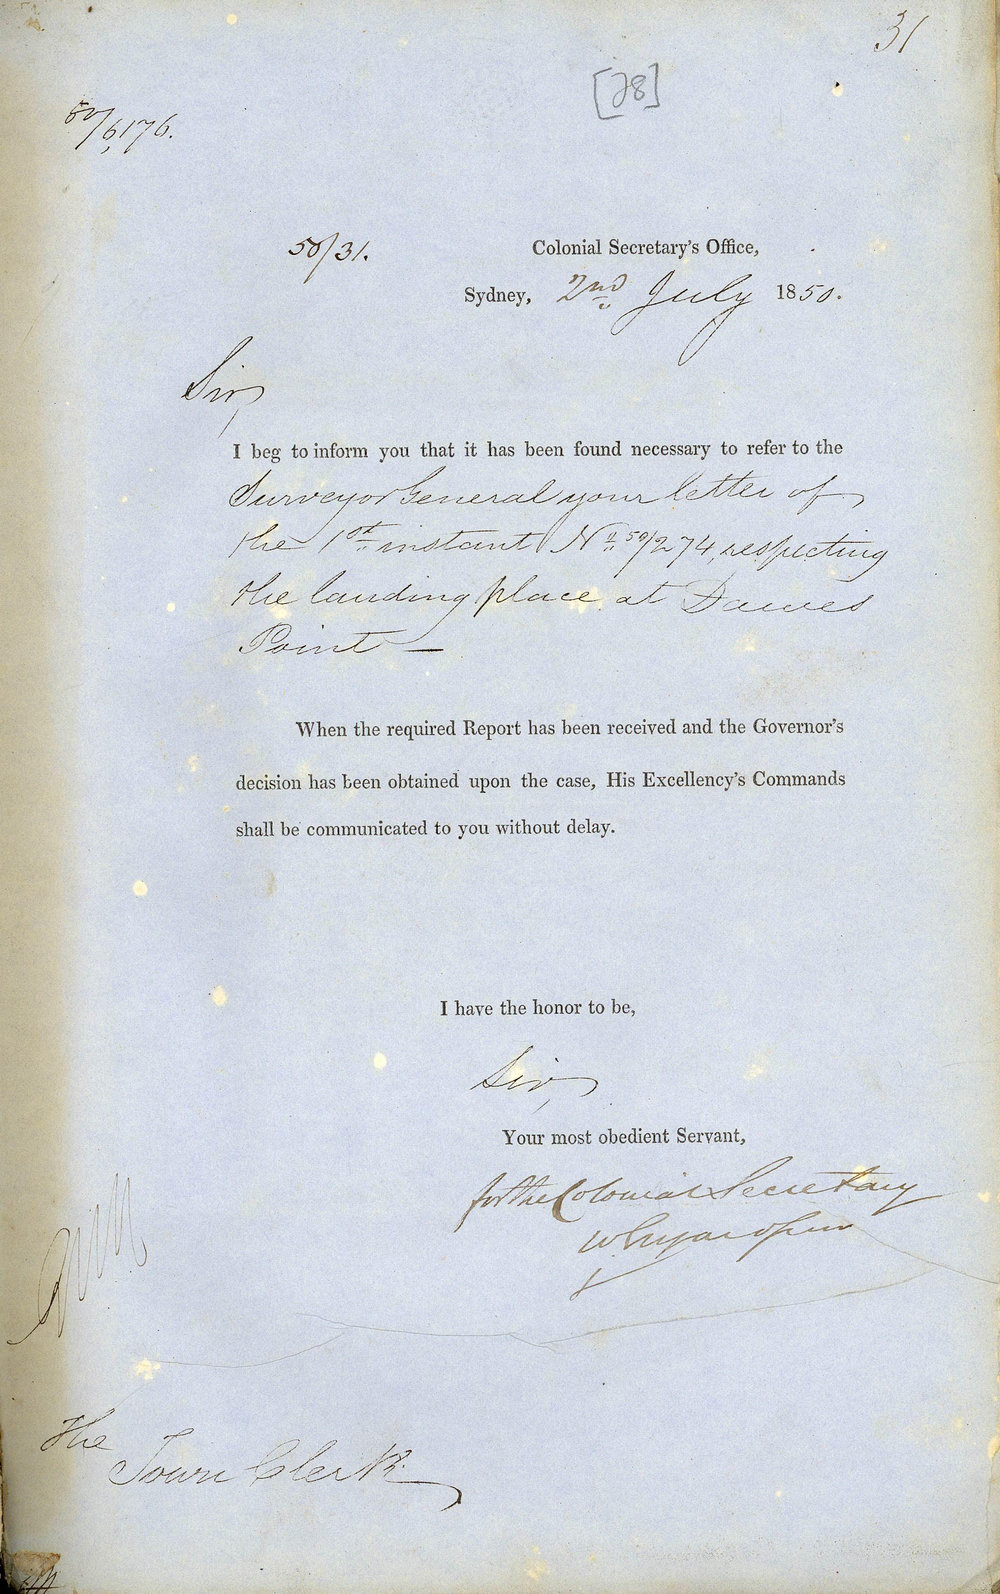 31
[28]
50/6176.
50/31.
Colonial Secretary's Office,
Sydney, 2nd July 1850.
Sir,
I beg to inform you that it has been found necessary to refer to the
Surveyor General your letter of
the 1st instant No 50/274, respecting
the landing place at Dawes
Point —
When the required Report has been received and the Governor's
decision has been obtained upon the case, His Excellency's Commands
shall be communicated to you without delay.
I have the honor to be,
Sir,
Your most obedient Servant,
for the Colonial Secretary
The
Town Clerk